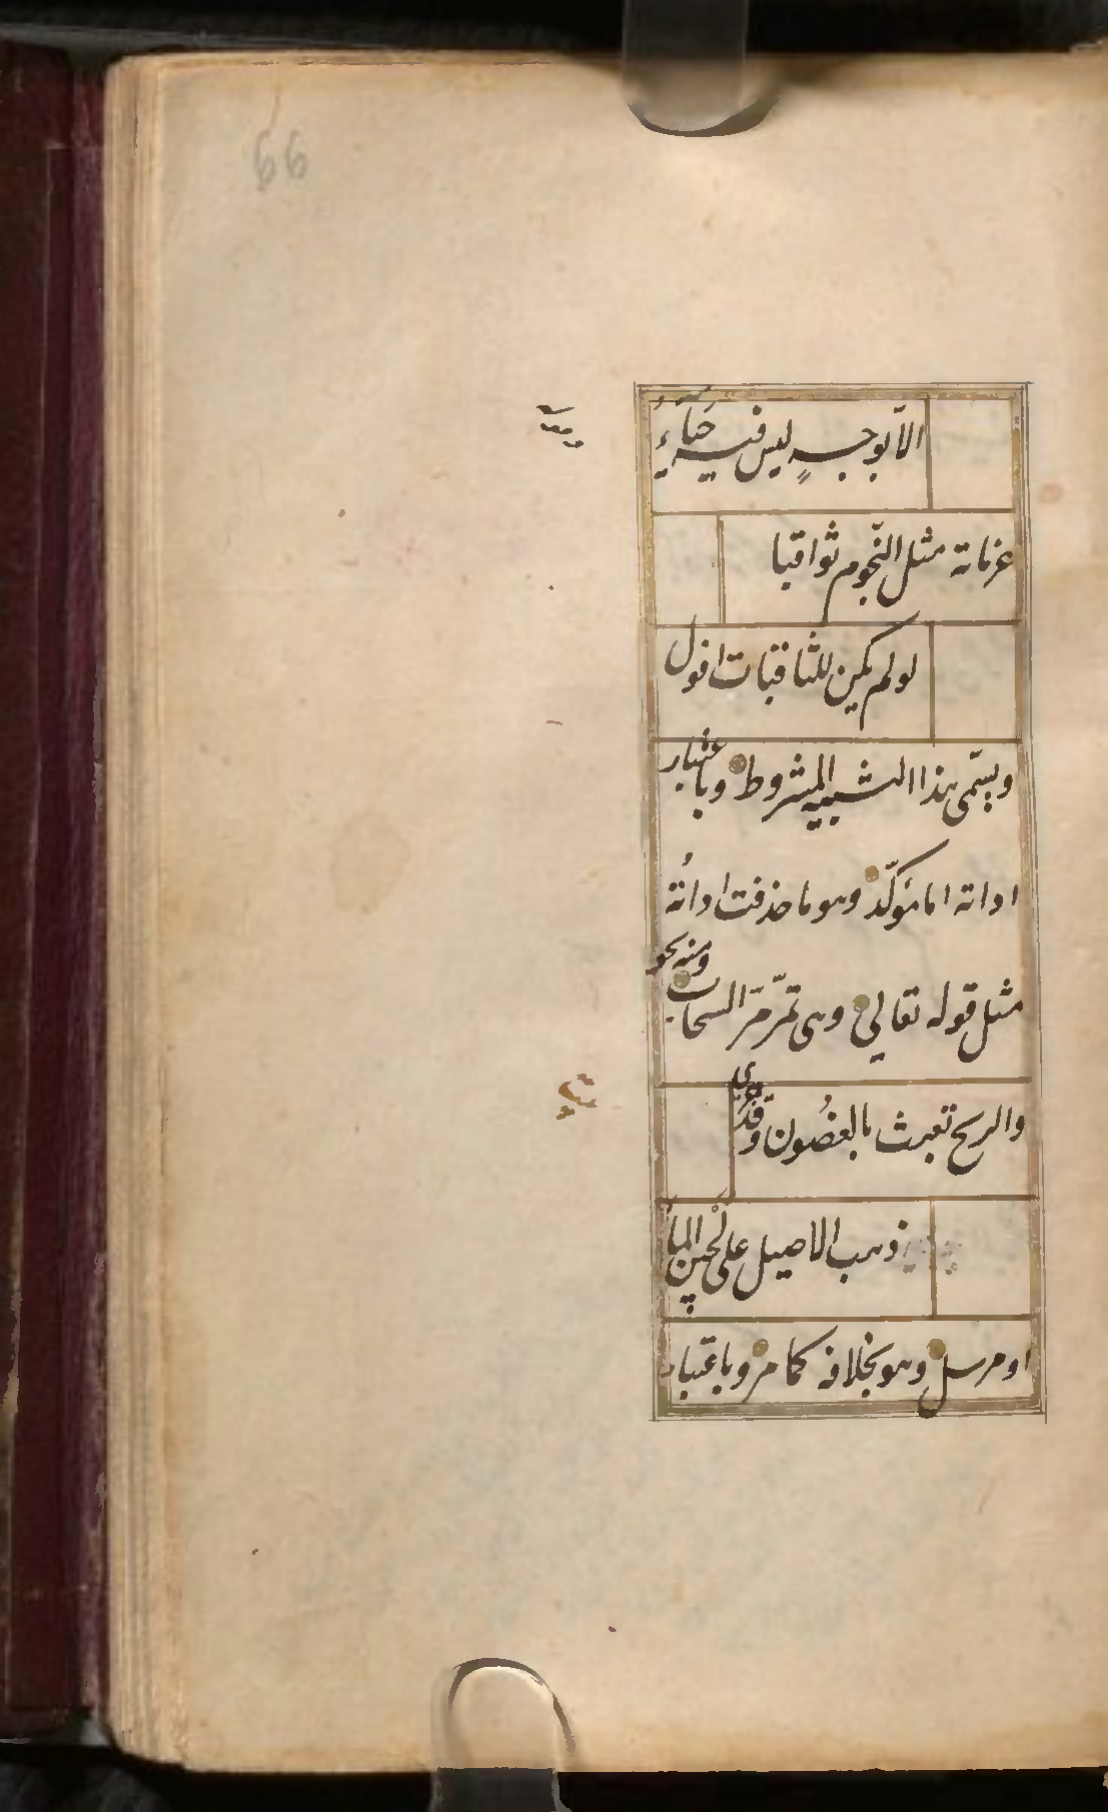 66
الاّ بوجهٍ ليس فيه حَيَآءُ
وقوله
عزماته مثل النّجوم ثواقبا
لو لم يكن للثاقبات افول
ويسّمى هذا التشبيه المشروط وباعتبار
اداته اما مؤكّد وهو ما حذفت اداتُه
مثل قوله تعالى وهى تمرّ مرّ السحاب ومنه نحو
والريح تعبث بالغصُون وقد جرى
ذهب الاصيل على لُجين المآء
او مرسل وهو بخلافه كما مر وباعتبار